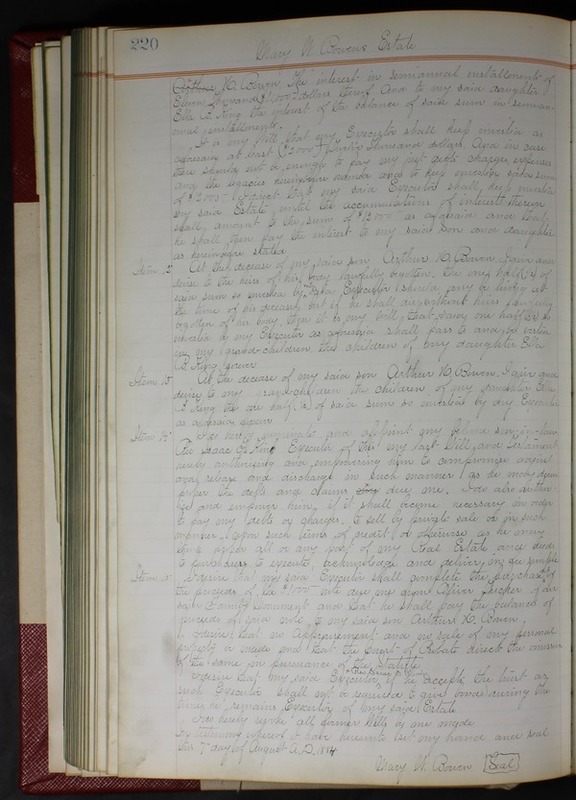 220
Mary W. Bowens Estate
Arthur H. Bowen the interest in semiannual installments of
thereof. And to my said daughter
Ella B. King the interest of the balance of said sum in semian-
nual installments.
It is my will that my Executor shall keep invested as
aforesaid at least Thousand dollars. And in case
there should not be enough to pay my just debts charges expenses
and the legacies hereinbefore named and to keep invested said sum
of I direct that my said Executor shall keep invested
my said Estate until the accumulations of interest thereon
shall amount to the sum of as aforesaid and that
he shall then pay the interest to my said son and daughter
as hereinbefore stated
Item At the decease of my said son Arthur H. Bowen I give and
devise to the heirs of his body lawfully begotten the one half of
said sum so invested by my Executor should any be living at
the time of his decease but if he shall die without heirs lawfully
begotten of his body then it is my will that said one half so
invested by my Executor as aforesaid shall pass to and be vested
in my grand-children the children of my daughter Ella
B. King forever
Item At the decease of my said son Arthur H. Bowen. I give and
devise to my grandchildren the children of my daughter Ella
B. King the one half of said sum so invested by my Executor
as aforesaid forever
Item I do hereby nominate and appoint my son-in-law
King Executor of this my last Will and testament
hereby authorizing and empowering him to compromise adjust
and release and discharge in such manner as he may deem
proper the debts and claims due me. I do also author-
ize and empower him, if it shall become necessary in order
to pay my debts or charges, to sell by private sale or in such
manner, upon such terms of credit, or otherwise, as he may
think proper all or any part of my Real Estate and deeds
to purchasers to execute, acknowledge and deliver in fee simple
Item I desire that my said Executor shall complete the
the proceeds of the note due me from Oliver
Family Monument and that he shall pay the balance of
proceeds of said note to my said son Arthur H. Bowen.
I desire that no Appraisement and no sale of my personal
property be made and that the Court of Probate direct the omission
of the same in pursuance of the Statute
I desire that my said Executor if he accepts the trust as
such Executor shall not be required to give bond during the
time he remains Executor of my said Estate
I do hereby revoke all former Wills by me made
In testimony whereof I have hereunto set my hand and seal
this 7th day of August A.D. 1894
Mary W. Bowen Seal